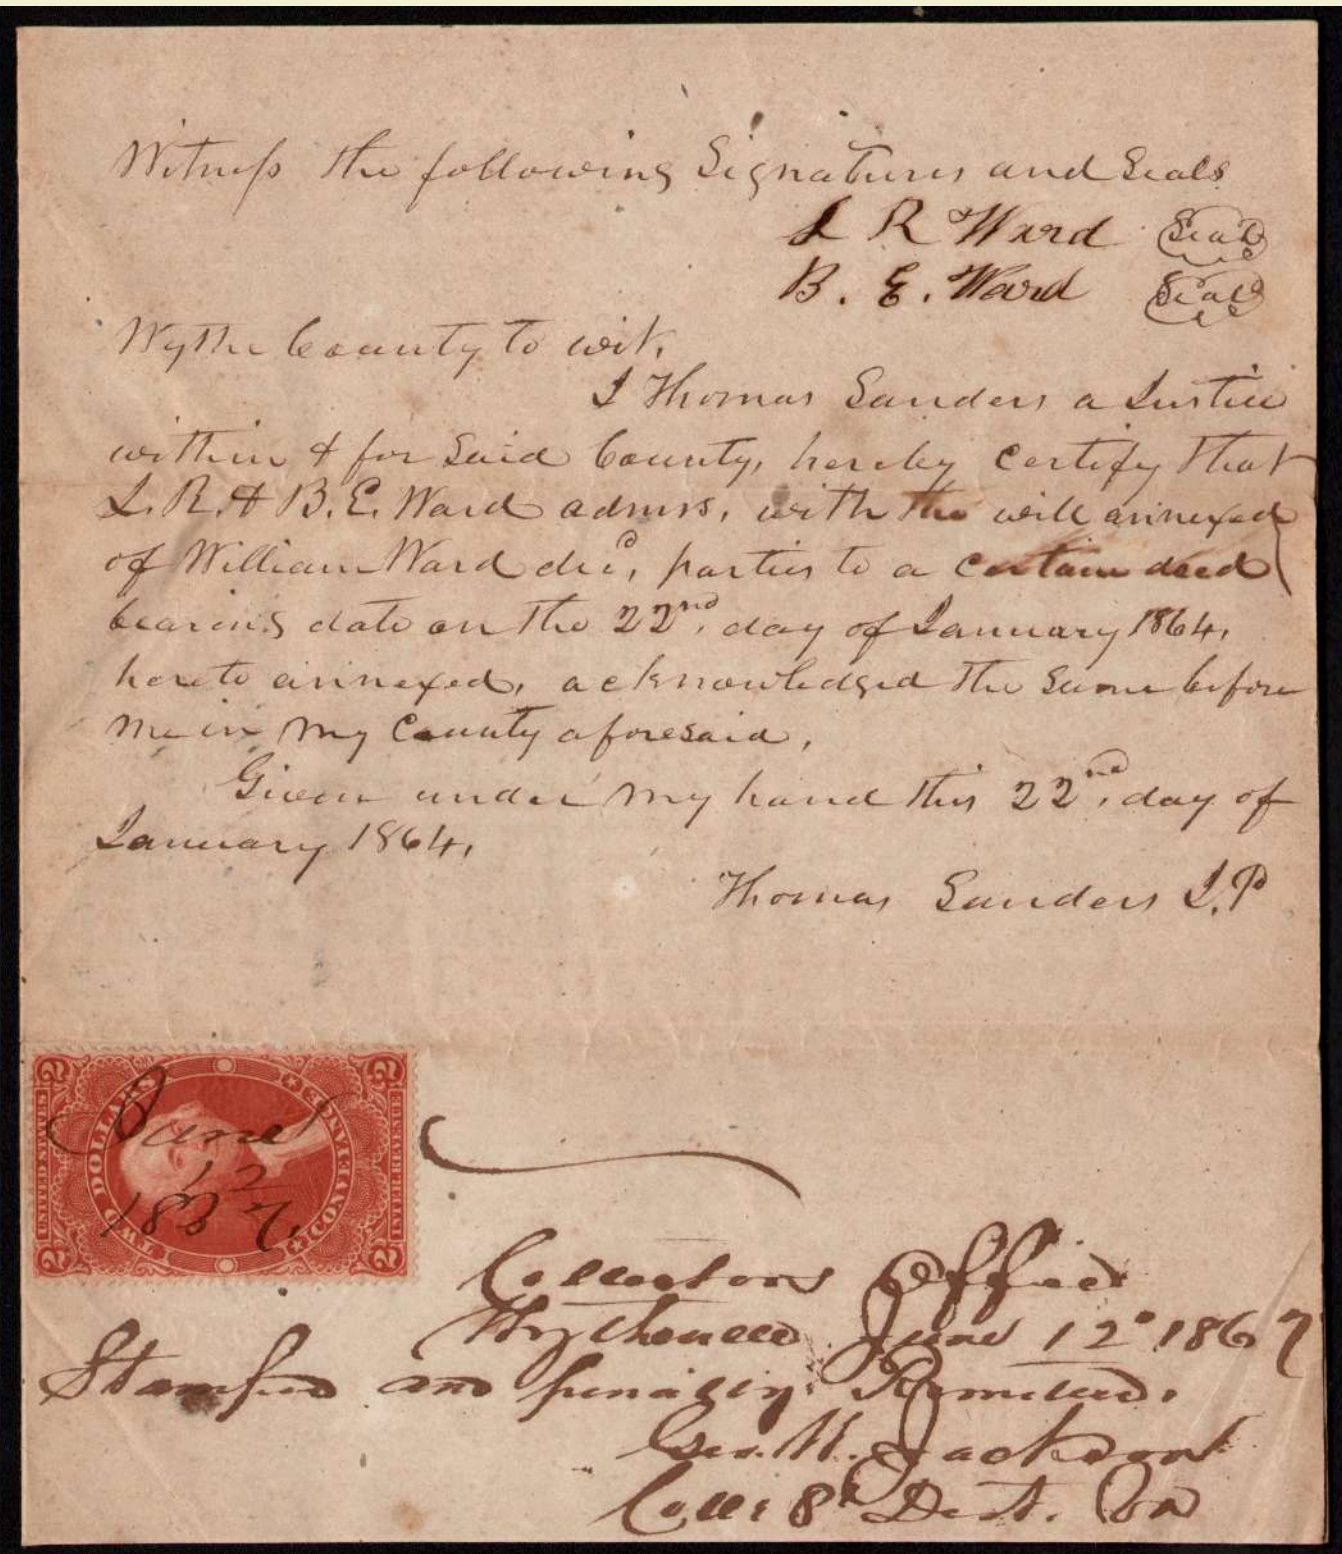 Witness the following Signatures and Seals
J R Ward Seal
B. E. Ward Seal
Wythe County to wit,
I Thomas Sanders a Justice
within & for said County, hereby certify that
J. R. & B. E. Ward admrs, with the will annexed
of William Ward decd, parties to a certain deed
bearing date on the 22nd, day of January 1864,
hereto annexed, acknowledged the same before
me in my County aforesaid,
Given under my hand this 22nd, day of
January 1864,
Thomas Sanders J.P
UNITED STATES
TWO DOLLARS
CONVEYANCE
INTER. REVENUE
2 2 2 2
June
12
1867
Collectors Office
Wytheville June 12 1867
Stamped and penalty Remitted.
Geo. W. Jackson
Coll: 8 Dist. Va